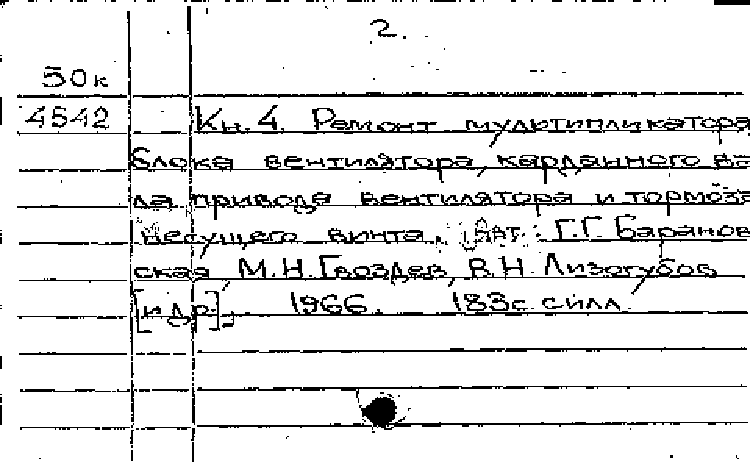 2.
50к
4542 Кн. 4. Ремонт мультипликатора
блока вентилятора, карданного ва-
ла привода вентилятора и тормоза
несущего винта. Авт.: Г.Г. Баранов-
ская, М.Н. Гвоздев, В.Н. Лизогубов
[и др.], 1966. 183с. с илл.